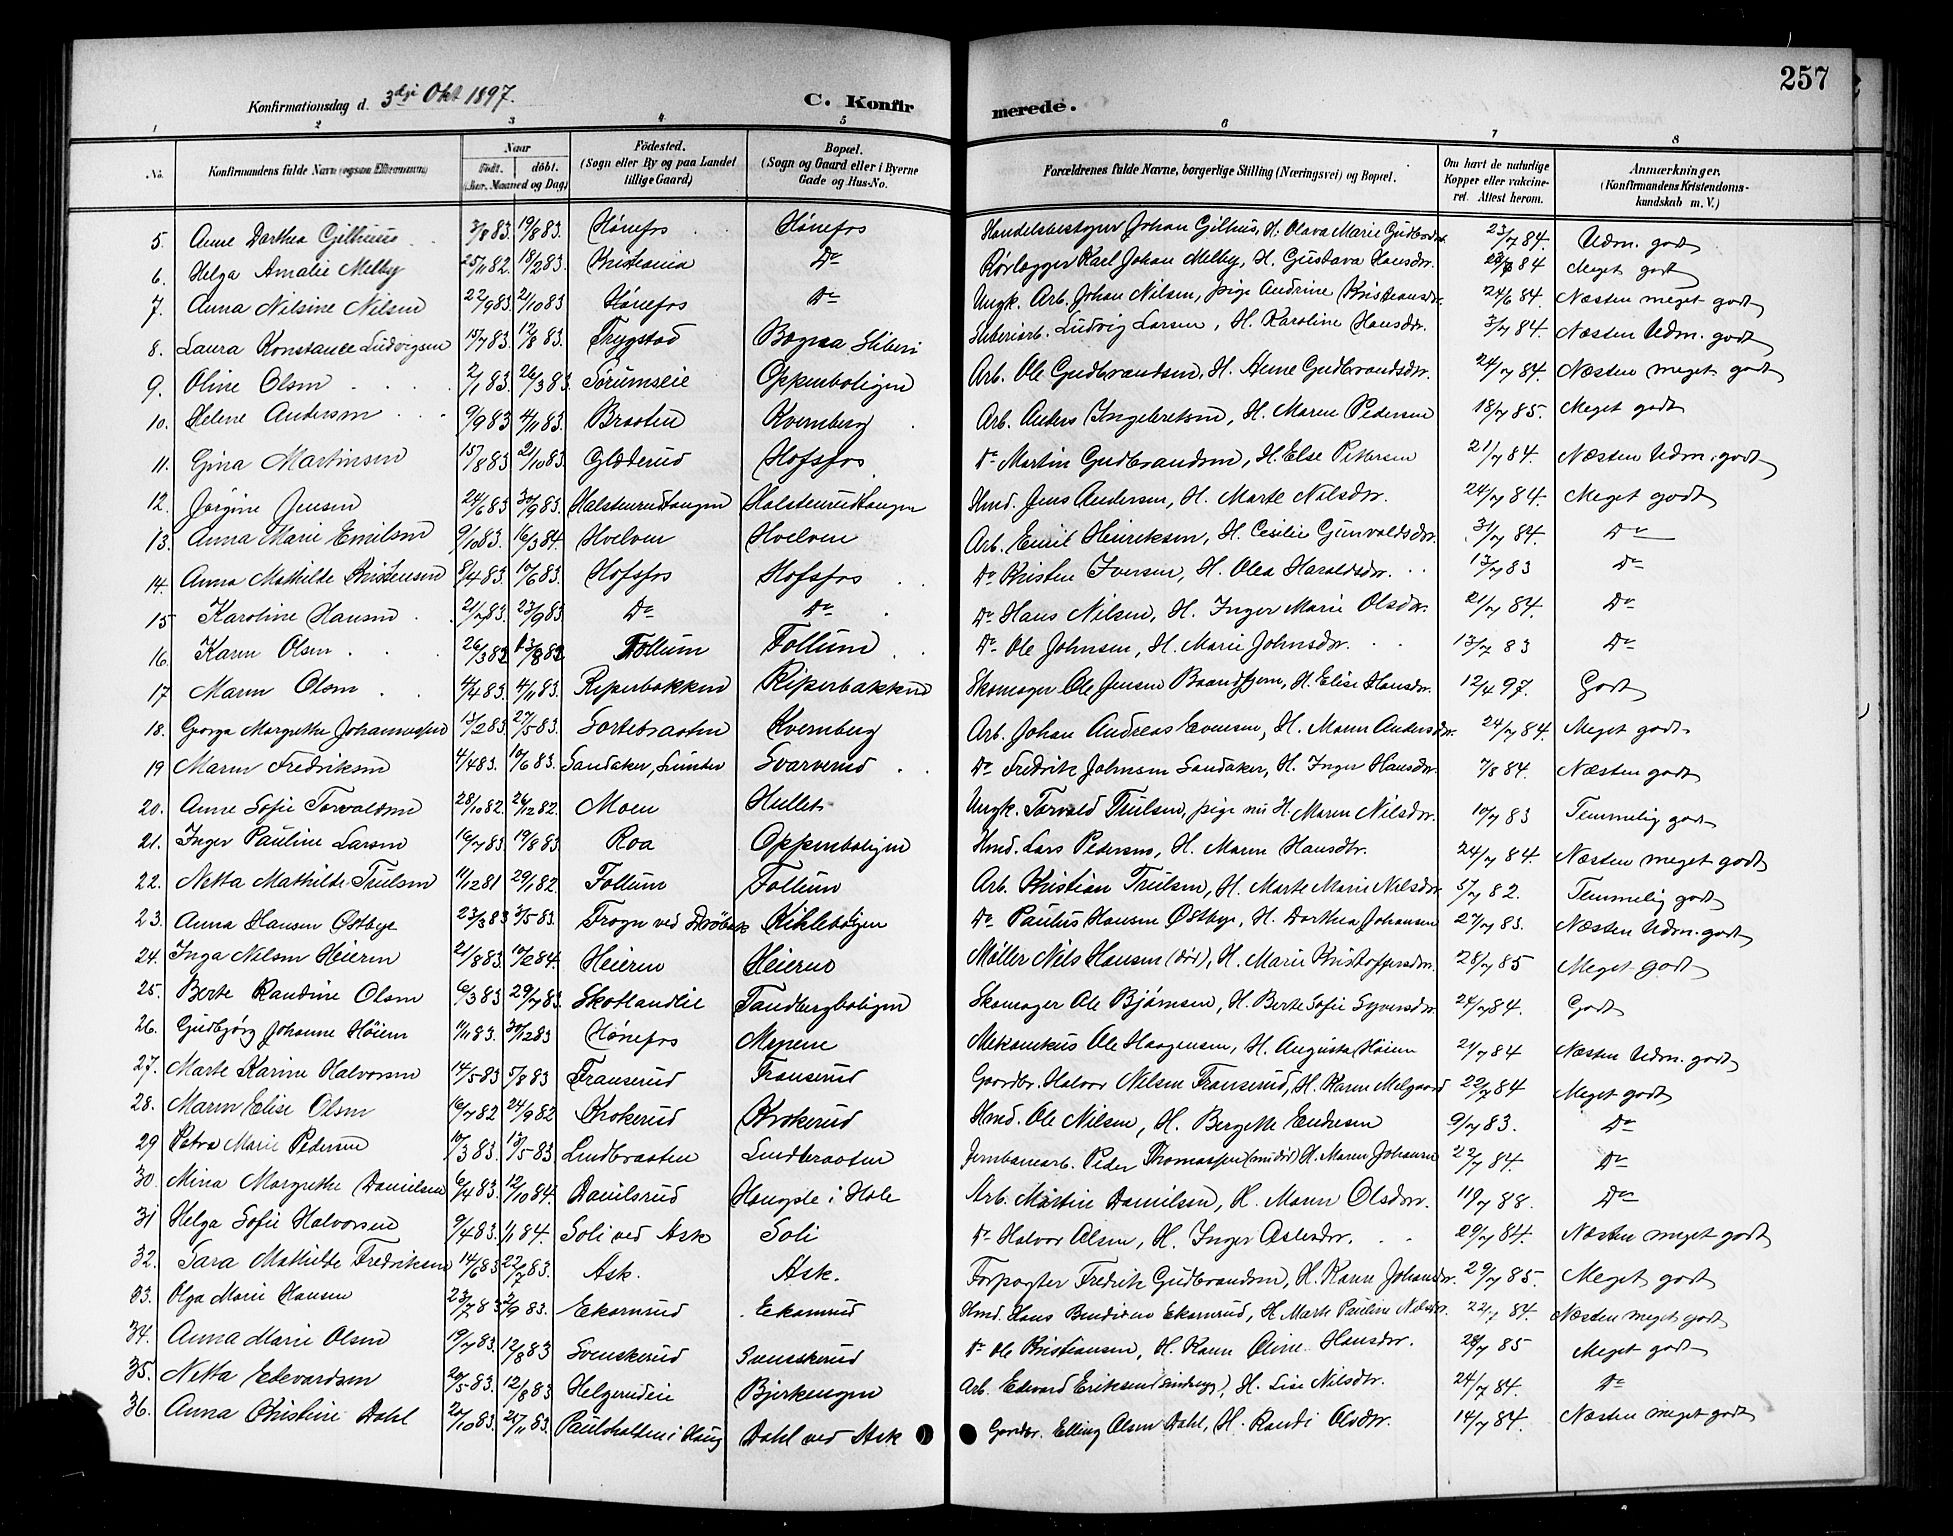 257
Konfirmationsdag d. 3dje Okt 1897.
C. Konfirmerede.
1 2 3 4 5 6 7 8
No. Konfirmandens fulde Navn (ogsaa Efternavn) Naar Födt. döbt. (Aar. Maaned og Dag) Födested. (Sogn eller By og paa Landet tillige Gaard) Bopæl. (Sogn og Gaard eller i Byerne Gade og Hus-No. Forældrenes fulde Navne, borgerlige Stilling (Næringsvei) og Bopæl. Om havt de naturlige Kopper eller vakcineret. Attest herom. Anmærkninger. (Konfirmandens Kristendomskundskab m. V.)
5. Anne Dorthea Gilhuus 3/8 83. 19/8 83. Hønefos Hønefos Handelsbestyrer Johan Gilhus, H. Olava Marie Gudbrdr. 23/7 84. Udm. godt
6. Helga Amalie Melby 25/11 82. 18/2 83. Kristiania Do Rørlægger Karl Johan Melby, H. Gustava Hansdr. 84 Meget godt
7. Anna Nilsine Nilsen 22/9 83. 21/10 83. Hønefos Do Ungk. Arb. Johan Nilsen, pige Andrine Kristiansdr. 24/6 84. Næsten meget godt
8. Laura Konstance Ludvigsen 15/7 83. 12/8 83. Trygstad Bogna Sliberi Sliberiarb. Ludvig Larsen, H. Karoline Hansdr. 3/7 84. Næsten Udm. godt
9. Oline Olsen 2/1 83. 26/3 83. Sørumseie Oppenboligen Arb. Ole Gudbrandsen, H. Anne Gudbrandsdr. 24/7 84. Næsten meget godt
10. Helene Andersen 9/9 83 4/11 83. Braaten Kvernberg Arb. Anders Ingebretsen, H. Maren Pedersen 18/7 85. Meget godt
11. Gina Martinsen 15/8 83 21/10 83. Glæderud Hofsfos Do Martin Gudbrandsen, H. Else Pettersen 21/7 84. Næsten Udm. godt
12. Jørgine Jensen 24/6 83 30/9 83. Halstenrudtangen Halstenrudtangen Hmd. Jens Andersen, H. Marte Nilsdr. 24/7 84. Meget godt
13. Anna Marie Emilsen 9/10 83. 16/3 84. Hvelven Hvelven Arb. Emil Henriksen, H. Cesilie Gunvaldsdr. 31/7 84. Do
14. Anna Mathilde Kristensen 8/4 83. 10/6 83. Hofsfos Hofsfos Do Kristen Iversen, H. Olea Haraldsdr. 13/7 83 Do
15 Karoline Hansen 21/7 83. 23/9 83. Do Do Do Hans Nilsen, H. Inger Marie Olsdr. 21/7 84. Do
16. Karen Olsen 26/3 83 Follum Follum Do Ole Johnsen, H. Marie Johnsdr. 13/7 83 Do
17 Maren Olsen 4/4 83. 4/11 83. Ryperbakken Ryperbakken Skomager Ole Jensen H. Elise Hansdr. 12/4 97. Godt
18. Georga Margrethe Johannessen 13/2 83. 27/5 83. Sortebraaten Kvernberg Arb. Johan Andreas Evensen, H. Maren Andersdr. 24/7 84. Meget godt
19 Maren Fredriksen 4/4 83. 10/6 83. Sandaker, Lunder Svarverud Do Fredrik Johnsen Sandaker, H. Inger Hansdr. 7/8 84. Næsten godt
20. Anne Sofie Torvaldsen 28/10 82. 26/12 82. Moen Hullet Ungk. Torvald Trulsen, pige nu H. Maren Nilsdr. 10/7 83 Temmelig godt
21. Inger Pauline Larsen 16/7 83. 19/8 83. Roa Oppenboligen Hmd. Lars Pedersen, H. Maren Hansdr. 24/7 84. Næsten meget godt
22. Netta Mathilde Trulsen 11/12 81 29/1 82. Follum Follum Arb. Kristian Trulsen, H. Marte Marie Nilsdr. 5/7 82. Temmelig godt
23. Anna Hansen Østbye 23/3 83 3/5 83. Frogn ved Drøbak Kihlebøigen Do Paulus Hansen Østbye, H. Dorthea Johansen 27/7 83. Næsten Udm. godt
24. Inga Nilsen Heieren 21/8 83. 10/2 84. Heieren Heieren Møller Nils Hansen (død), H. Marie Kristoffersdr. 28/7 85 Meget godt
25. Berte Randine Olsen 6/3 83 29/7 83. Skotlandlie Tandbergboligen Skomager Ole Bjørnsen, H. Berte Sofie Syversdr. 24/7 84. Godt
26. Gudbjørg Johanne Höien 11/11 83. 30/12 83 Hønefos Moene Mekanikus Ole Haagensen, H. Augusta Höien 21/7 84 Næsten Udm. godt
27. Marte Karine Halvorsen 14/5 83 5/8 83 Franserud Franserud Gaardbr. Halvor Nilsen Franserud, H. Karen Melgaard 22/7 84 Meget godt
28. Maren Elise Olsen 16/7 82 24/9 82 Krokerud Krokerud Hmd. Ole Nilsen, H. Bergette Endresen 9/7 83. Do
29 Petra Marie Pedersen 10/3 83. 13/5 83 Lindbraaten Lindbraaten Jernbanearb. Peder Thomassen (nu død) H. Maren Johansen 22/7 84. Do
30. Mina Margrethe Danielsen 6/4 83. 12/10 84. Danilsrud i Hole Arb. Martin Danielsen, H. Maren Olsdr. 19/7 88. Do
31 Helga Sofie Halvorsen 9/4 83. 1/1 84. Soli ved Ask Soli Do Halvor Olsen, H. Inger Aslesdr. 29/7 84. Næsten meget godt
32. Sara Mathilde Fredriksen 14/6 83 22/7 83. Ask. Ask. Forpagter Fredrik Gudbrandsen, H. Karen Johansdr. 29/7 85. Meget godt
33. Olga Marie Hansen 23/7 83 2/9 83. Ekornrud Ekornrud Hmd. Hans Bendixen Ekornrud, H. Marte Pauline Nilsdr. 22/7 84. Næsten meget godt
34. Anna Marie Olsen 19/7 83. 12/8 83 Svenskerud Svenskerud Do Ole Kristiansen, H. Karen Oline Hansdr. 28/7 85 Meget godt
35. Netta Edvardsen 20/5 83. 12/8 83 Helgerudeie Bjerkengen Arb. Edvard Eriksen, H. Lise Nilsdr. 24/7 84. Do
36. Anna Kristine Dahl 83. 83. Paulsholten i Haug Dahl ved Ask Gaardbr. Elling Olsen Dahl, H. Randi Olsdr. 14/7 84. Næsten meget godt